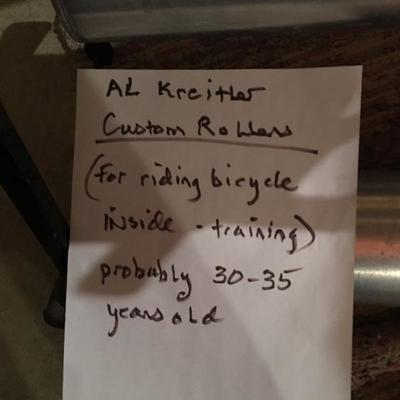 AL Kreitler
Custom Rollers
(for riding bicycle
inside - training)
probably 30-35
years old